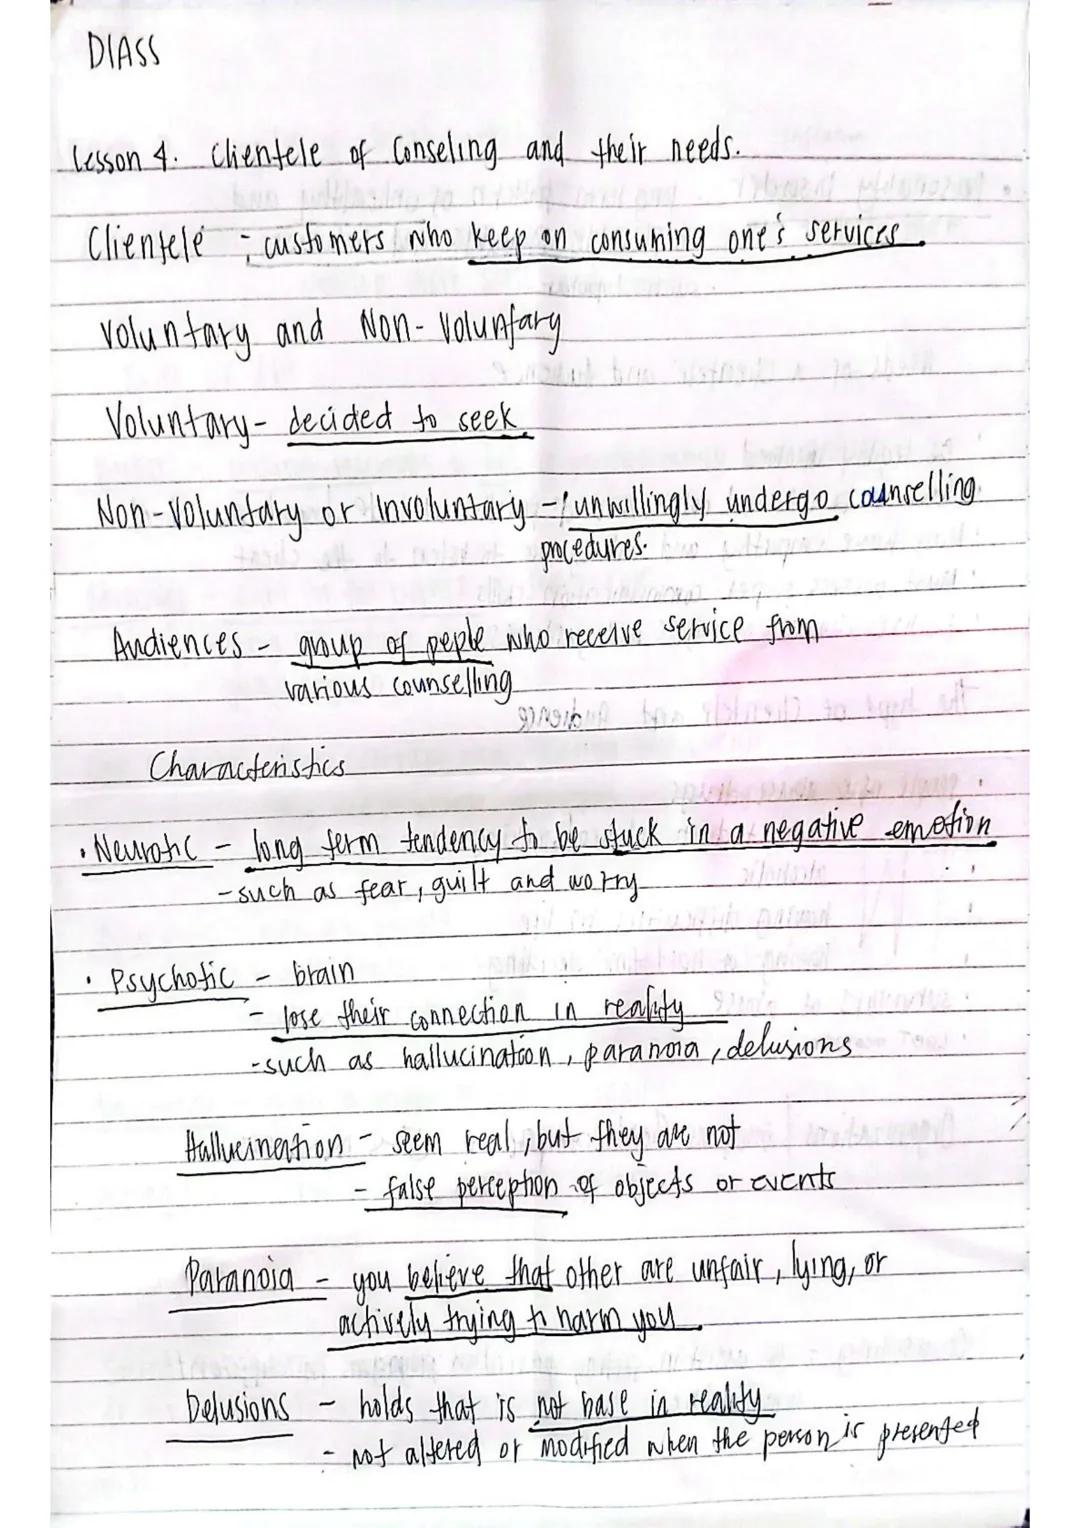 DIASS
Lesson 4. Clientele of Conseling and their needs.
Clientele - customers who keep on consuming one's services.
Voluntary and Non-Voluntary
Voluntary- decided to seek
Non-Voluntary or Involuntary - unwillingly undergo counselling
procedures.
Audiences - group of peple who receive service from
various counselling
Characteristics
• Neurotic - long term tendency to be stuck in a negative emotion
-such as fear, guilt and worry
• Psychotic - brain
- lose their connection in reality
-such as hallucination, paranoia, delusions
Hallucination - seem real, but they are not
- false perception of objects or events
Paranoia - you believe that other are unfair, lying, or
actively trying to harm you.
Delusions - holds that is not base in reality
- not altered or modified when the person is presented